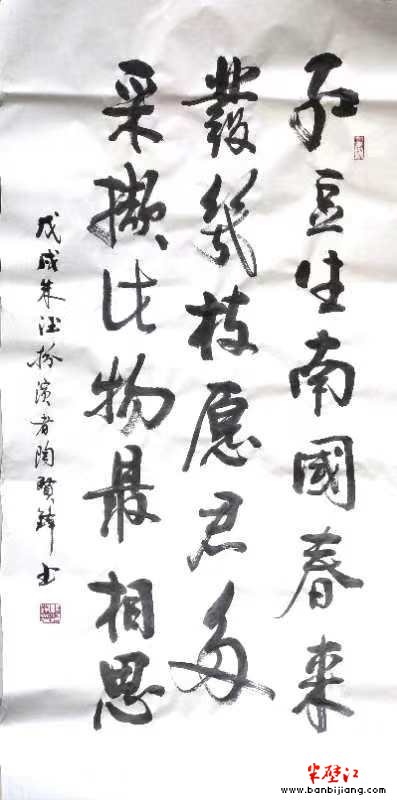 红豆生南國春来
發幾枝愿君多
采撷此物最相思
戊戌朱德扮演者陶贤锋书
半壁江
www.banbijiang.com